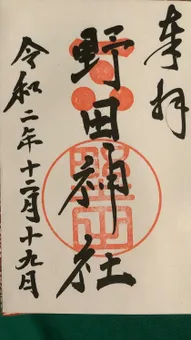 奉拝
野田神社
令和二年十二月十九日